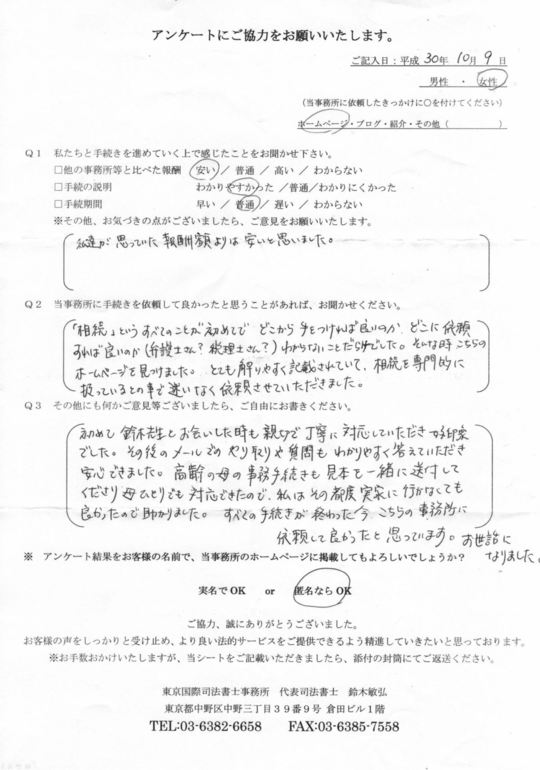 アンケートにご協力をお願いいたします。
ご記入日：平成 30年 10月 9日
男性 ・ 女性
（当事務所に依頼したきっかけに○を付けてください）
ホームページ・ブログ・紹介・その他（　　　　　　）
Ｑ１ 私たちと手続きを進めていく上で感じたことをお聞かせ下さい。
□他の事務所等と比べた報酬　安い ／ 普通 ／ 高い ／ わからない
□手続の説明　わかりやすかった ／普通／わかりにくかった
□手続期間　早い ／ 普通 ／ 遅い ／ わからない
※その他、お気づきの点がございましたら、ご意見をお願いいたします。
私達が思っていた報酬額よりは安いと思いました。
Ｑ２ 当事務所に手続きを依頼して良かったと思うことがあれば、お聞かせください。
「相続」というすべてのことが初めてで どこから手をつければ良いのか、どこに依頼
すれば良いのか（弁護士さん？税理士さん？）わからないことだらけでした。そんな時こちらの
ホームページを見つけました。とても解りやすく記載されていて、相続を専門的に
扱っているとの事で迷いなく依頼させていただきました。
Ｑ３ その他にも何かご意見等ございましたら、ご自由にお書きください。
初めて鈴木先生とお会いした時も親切で丁寧に対応していただき好印象
でした。その後のメールでのやり取りや質問もわかりやすく答えていただき
安心できました。高齢の母の事務手続きも見本を一緒に送付して
くださり母ひとりでも対応できたので、私はその都度実家に行かなくても
良かったので助かりました。すべての手続きが終わった今こちらの事務所に
依頼して良かったと思っています。お世話に
なりました。
※ アンケート結果をお客様の名前で、当事務所のホームページに掲載してもよろしいでしょうか？
実名でOK　or　匿名ならOK
ご協力、誠にありがとうございました。
お客様の声をしっかりと受け止め、より良い法的サービスをご提供できるよう精進していきたいと思っております。
※お手数おかけいたしますが、当シートをご記載いただきましたら、添付の封筒にてご返送ください。
東京国際司法書士事務所　代表司法書士　鈴木敏弘
東京都中野区中野三丁目３９番９号 倉田ビル１階
TEL:03-6382-6658　FAX:03-6385-7558